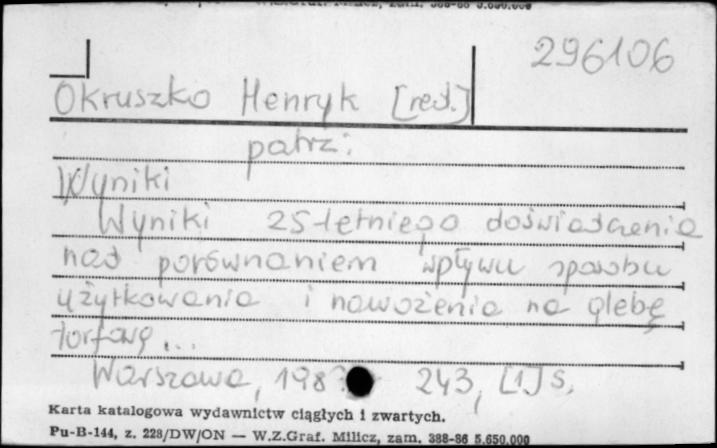 W.Z.Graf. Milicz, zam. 388-86 5.650.000
296106
Okruszko Henryk [red.]
patrz:
Wyniki
Wyniki 25-letniego doświadczenia
nad porównaniem wpływu sposobu
użytkowania i nawożenia na glebę
torfową ...
Warszawa, 198 243, [1] s.
Karta katalogowa wydawnictw ciągłych i zwartych.
Pu-B-144, z. 228/DW/ON — W.Z.Graf. Milicz, zam. 388-86 5.650.000